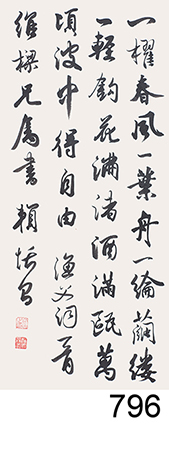 一櫂春風一葉舟一綸繭縷
一輕鈎花滿渚酒滿甌萬
頃波中得自由 漁父詞
維樑兄屬書 賴恬昌
796